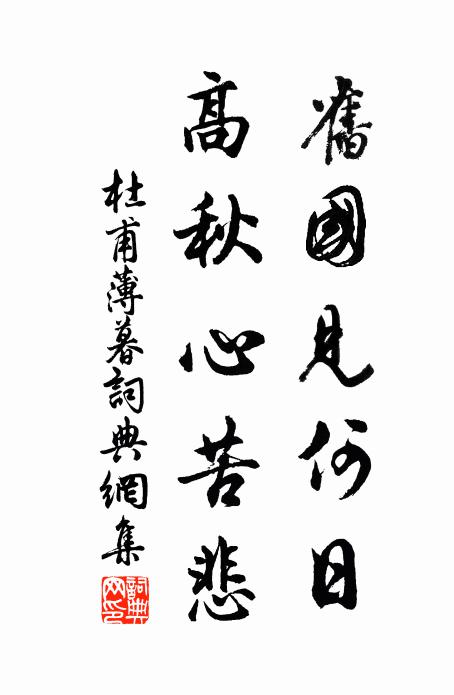 舊國見何日
高秋心苦悲
杜甫薄暮詞典網集
詞典網印